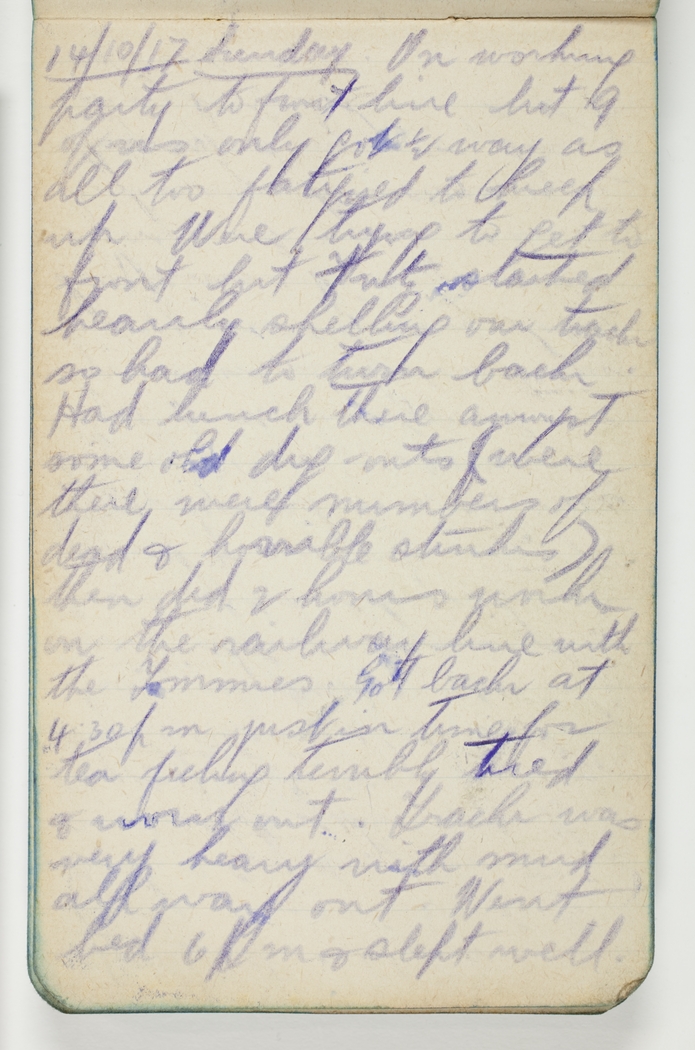 14/10/17 Sunday. On working
party to front line but 9
of us only got ½ way as
all too fatigued to keep
up. Were trying to get to
front but Fritz started
heavily shelling our track
so had to turn back.
Had lunch there amongst
some old dug-outs (were
there were numbers of
dead & horrible stinks)
then did 2 hours work
on the railway line with
the Tommies. Got back at
4.30pm just in time for
tea feeling terribly tired
& worn out. Track was
very heavy with mud
all way out. Went
bed 6pm & slept well.